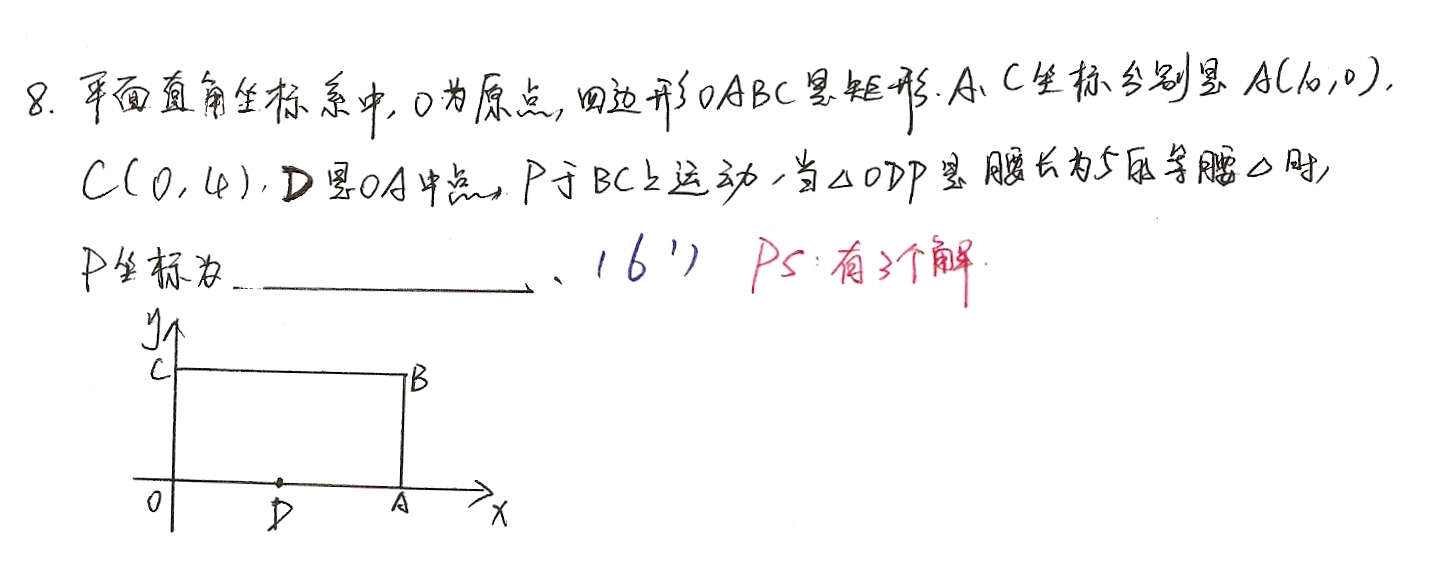 8. 平面直角坐标系中,O为原点,四边形OABC是矩形.A、C坐标分别是A(10,0),
C(0,4).D是OA中点,P于BC上运动,当△ODP是腰长为5的等腰△时,
P坐标为____________、(6') PS:有3个解.
y
C B
O D A x